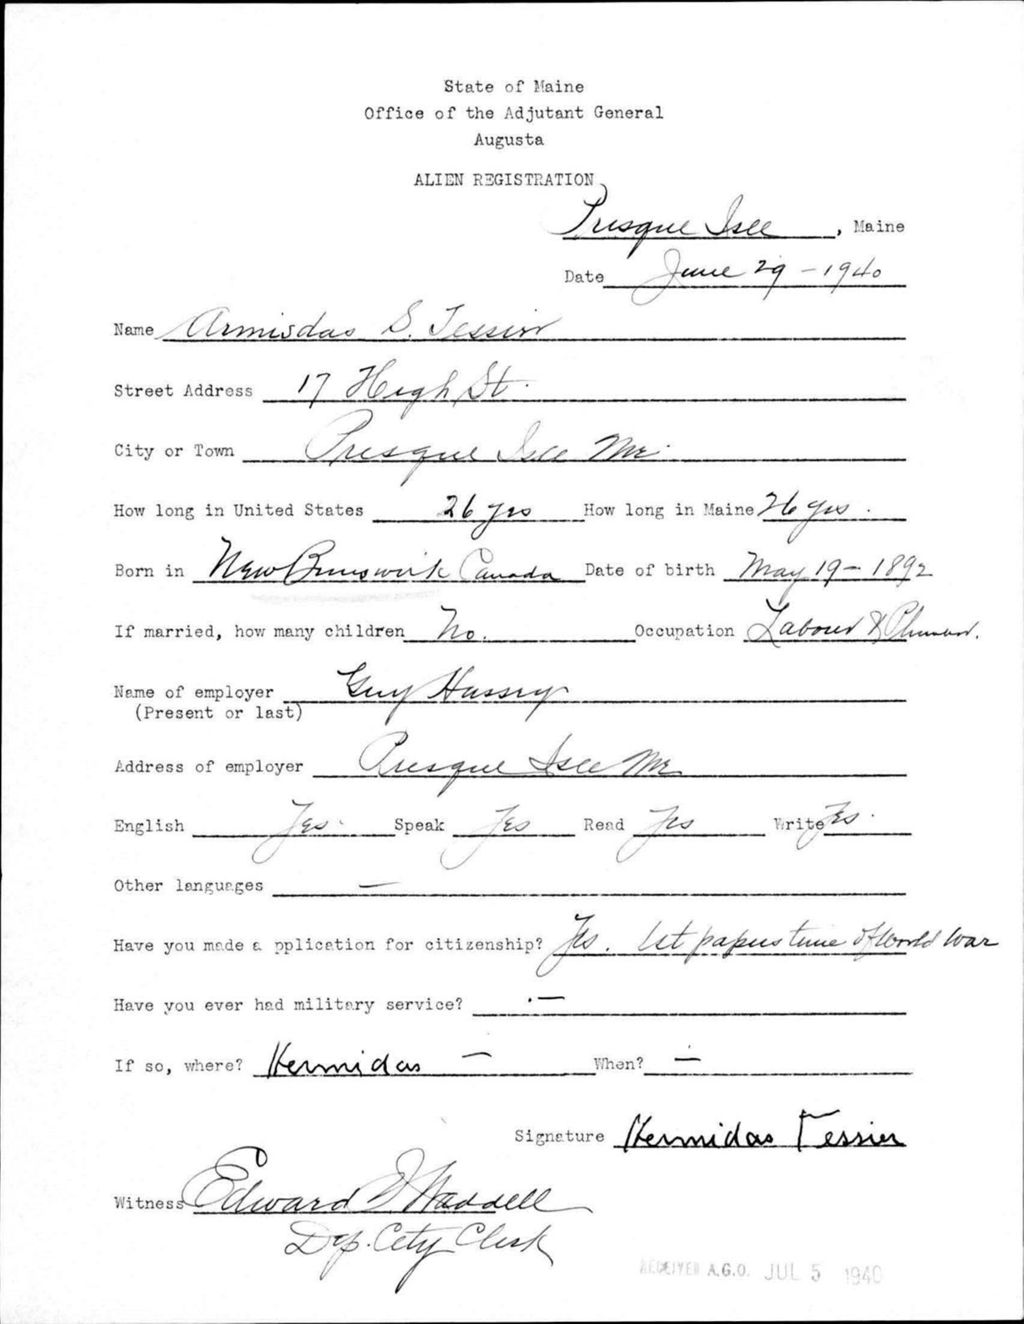 State of Maine
Office of the Adjutant General
Augusta
ALIEN REGISTRATION
Presque Isle, Maine
Date June 29 - 1940
Name Armisdas S. Tessier
Street Address 17 High St.
City or Town Presque Isle Me.
How long in United States 26 yrs How long in Maine 26 yrs.
Born in New Brunswick Canada Date of birth May 19 - 1892
If married, how many children No. Occupation Laborer &
Name of employer Guy Hussey
(Present or last)
Address of employer Presque Isle Me
English Yes. Speak Yes Read Yes Write Yes.
Other languages —
Have you made a pplication for citizenship? Yes. 1st papers time of World War
Have you ever had military service? . —
If so, where? Hermidas — When? —
Signature Hermidas Tessier
Witness Edward I Waddell
Dep. City Clerk
RECEIVED A.G.O. JUL 5 1940